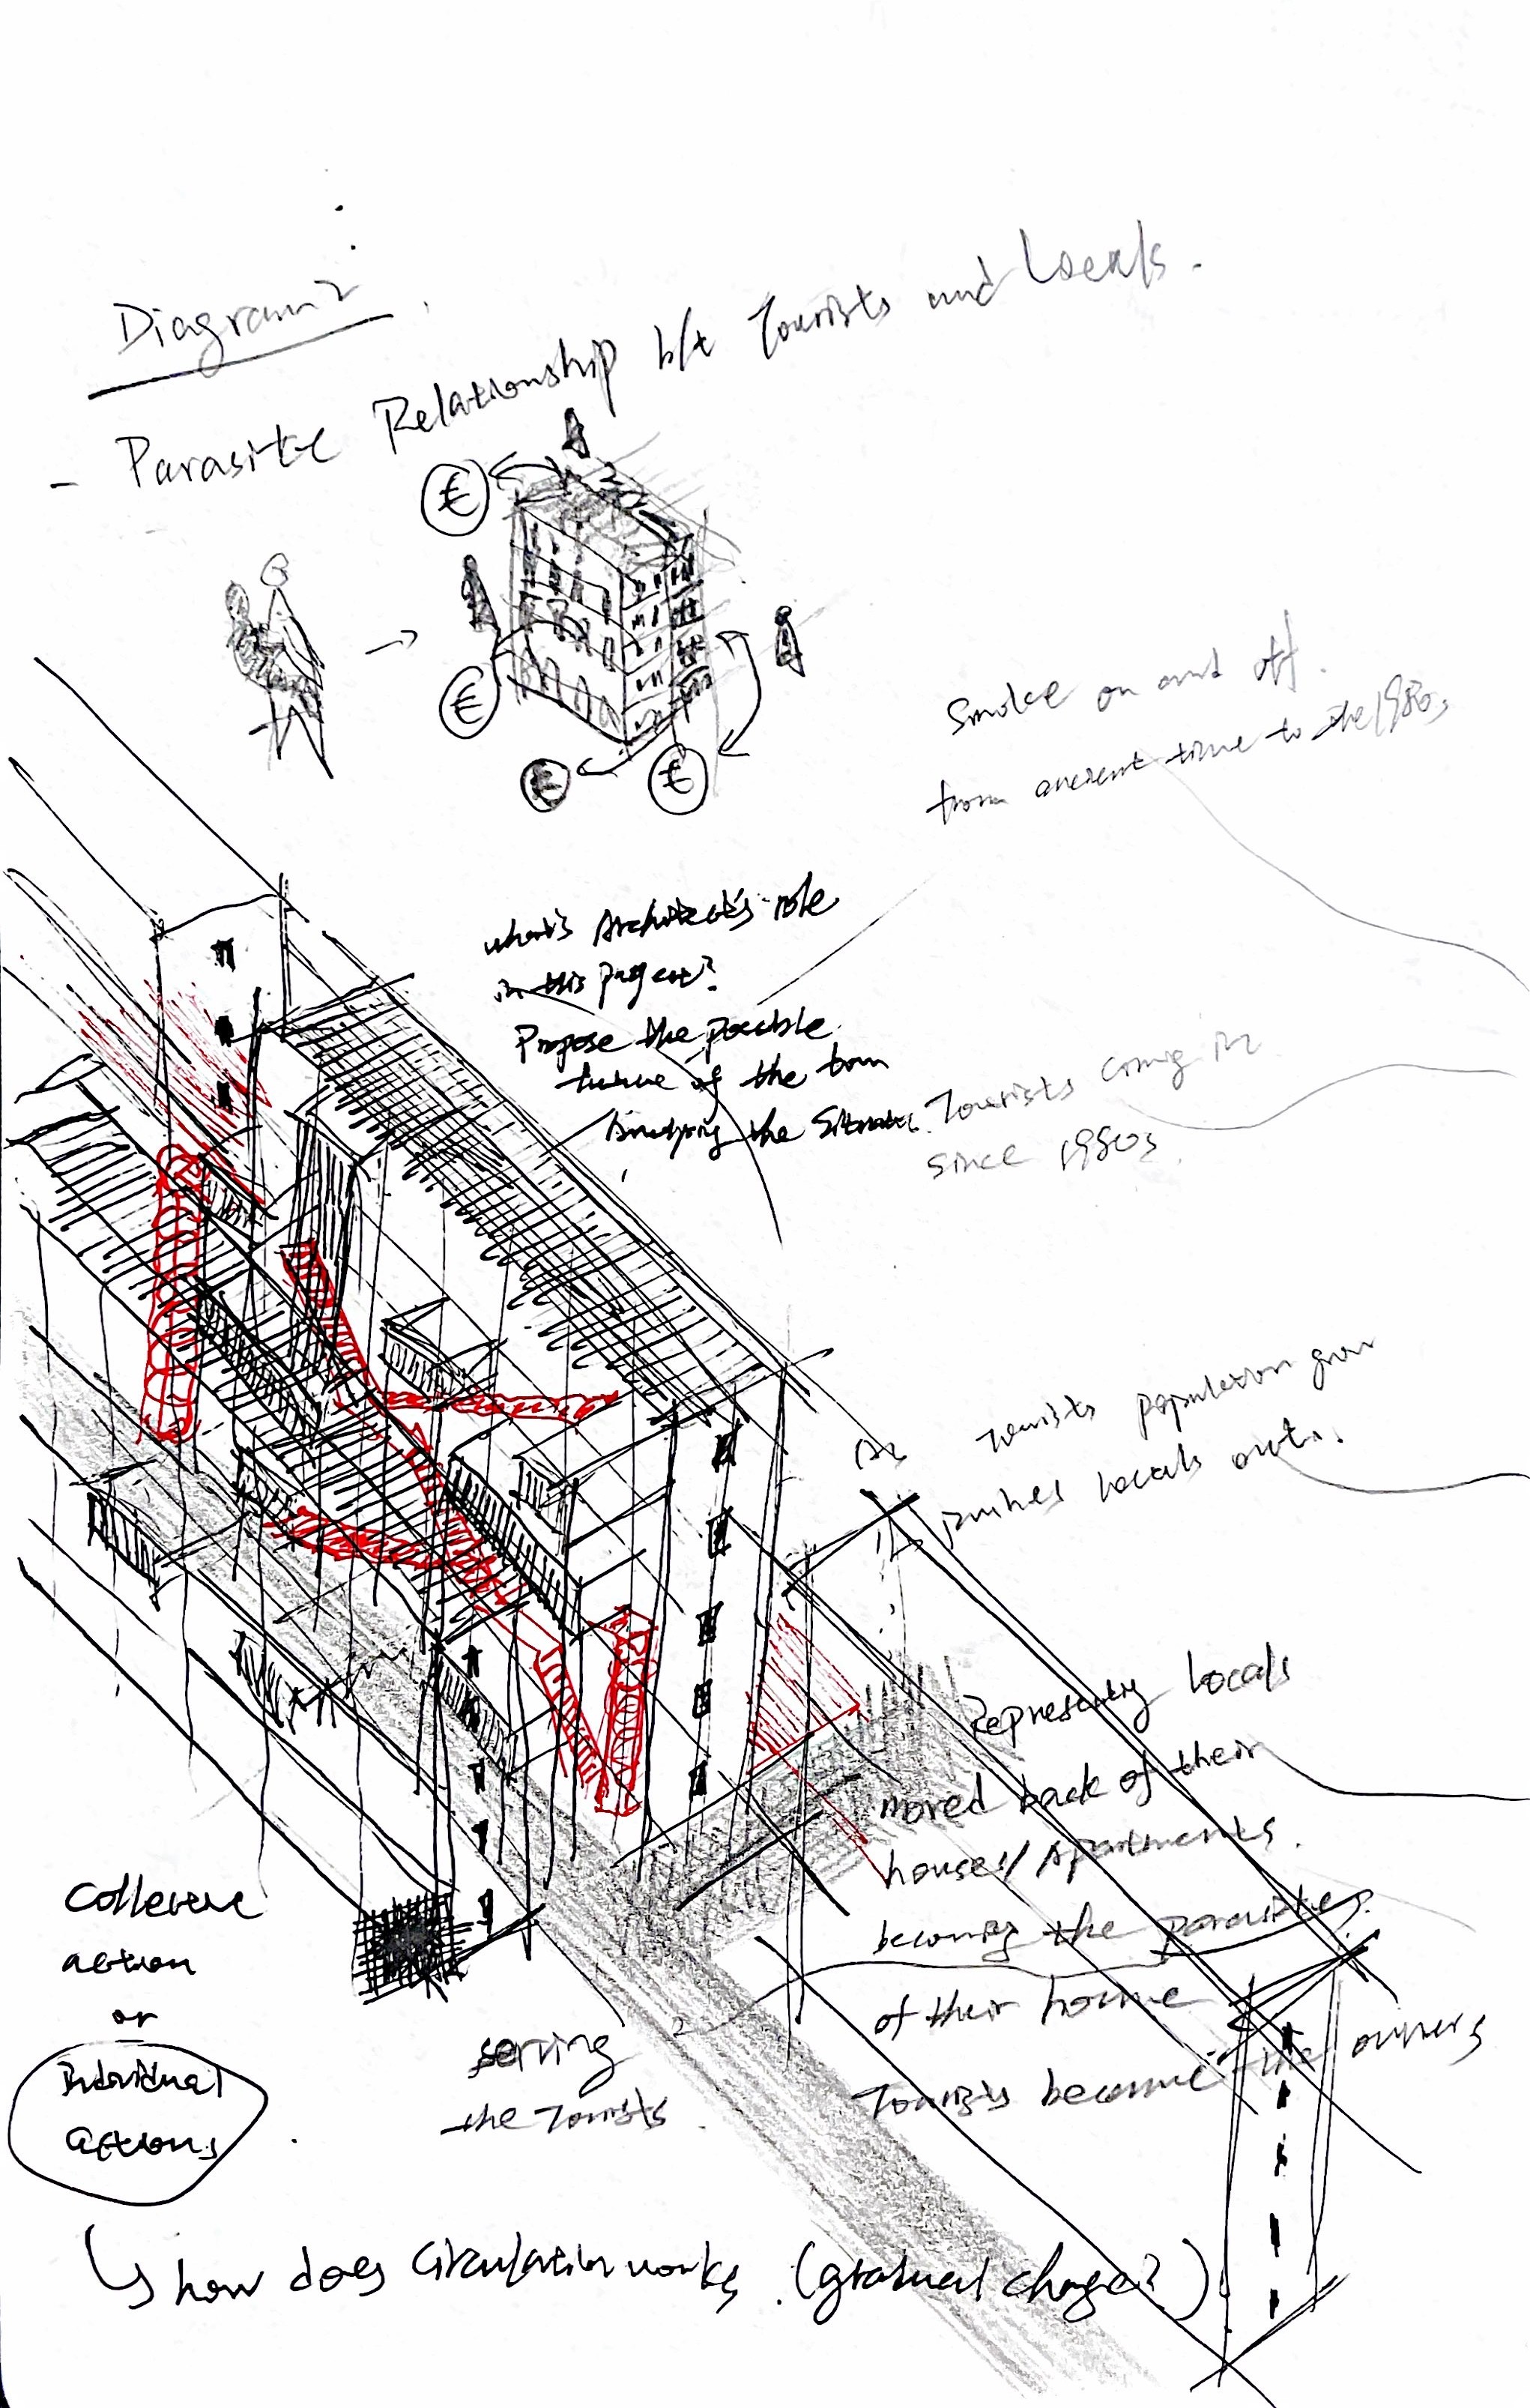 Diagram 2
- Parasite Relationship b/t Tourists and Locals.
€
€
€
€
Smoke on and off.
from ancient time to the 1980s
what's Architect's role
in this project?
Propose the possible
future of the town
Analyzing the
Tourists coming in
since 1980s.
As tourists population grow
pushes locals out.
Representing Locals
moved back of their
houses/Apartments.
becoming the parasites.
of their home
Tourists become the owners
serving
the Tourists.
Collective
action
or
Individual
actions
how does circulation works. (gradual change?)